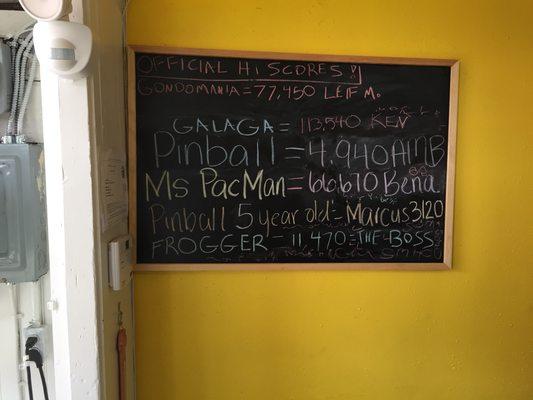 OFFICIAL HI SCORES!!
GONDOMANIA = 77,450 LEIF M.
GALAGA = 113,540 KEN
Pinball = 4,940 AMB
Ms PacMan = 66,670 Bena
Pinball 5 year old - Marcus 3120
FROGGER - 11,470 = THE BOSS